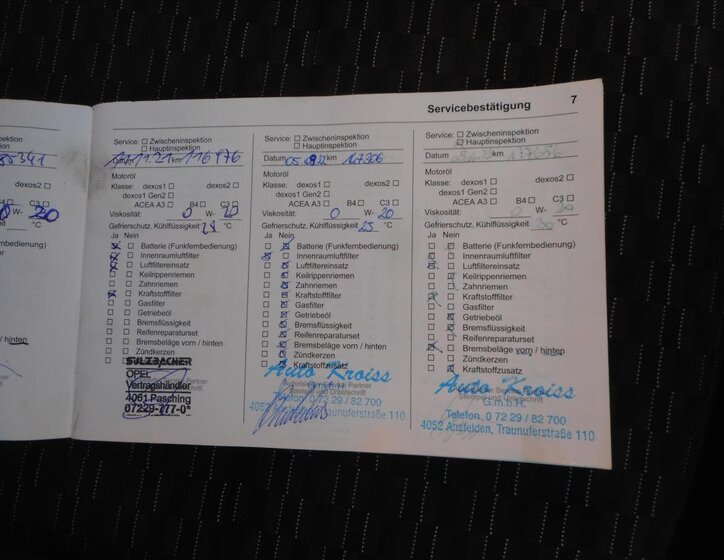 Servicebestätigung 7
85341
dexos2
C3
20
°C
(Funkfernbedienung)
hinten
Service: Zwischeninspektion
Hauptinspektion
11.21 km 116976
Motoröl
Klasse: dexos1 dexos2
dexos1 Gen2
ACEA A3 B4 C3
Viskosität: 0 W- 20
Gefrierschutz, Kühlflüssigkeit °C
Ja Nein
Batterie (Funkfernbedienung)
Innenraumluftfilter
Luftfiltereinsatz
Keilrippenriemen
Zahnriemen
Kraftstofffilter
Gasfilter
Getriebeöl
Bremsflüssigkeit
Reifenreparaturset
Bremsbeläge vorn / hinten
Zündkerzen
SULZBACHER
OPEL
Vertragshändler
4061 Pasching
07229-777-0*
Service: Zwischeninspektion
Hauptinspektion
Datum km
Motoröl
Klasse: dexos1 dexos2
dexos1 Gen2
ACEA A3 B4 C3
Viskosität: 0 W- 20
Gefrierschutz, Kühlflüssigkeit 25 °C
Ja Nein
Batterie (Funkfernbedienung)
Innenraumluftfilter
Luftfiltereinsatz
Keilrippenriemen
Zahnriemen
Kraftstofffilter
Gasfilter
Getriebeöl
Bremsflüssigkeit
Reifenreparaturset
Bremsbeläge vorn / hinten
Zündkerzen
Kraftstoffzusatz
Auto Kroiss
Stempel und Unterschrift
Telefon 0 72 29 / 82 700
4052 Ansfelden, Traunuferstraße 110
Service: Zwischeninspektion
Hauptinspektion
Datum km
Motoröl
Klasse: dexos1 dexos2
dexos1 Gen2
ACEA A3 B4 C3
Viskosität: 0 W- 20
Gefrierschutz, Kühlflüssigkeit 30 °C
Ja Nein
Batterie (Funkfernbedienung)
Innenraumluftfilter
Luftfiltereinsatz
Keilrippenriemen
Zahnriemen
Kraftstofffilter
Gasfilter
Getriebeöl
Bremsflüssigkeit
Reifenreparaturset
Bremsbeläge vorn / hinten
Zündkerzen
Kraftstoffzusatz
Auto Kroiss
Stempel und Unterschrift
G.m.b.H.
Telefon 0 72 29 / 82 700
4052 Ansfelden, Traunuferstraße 110